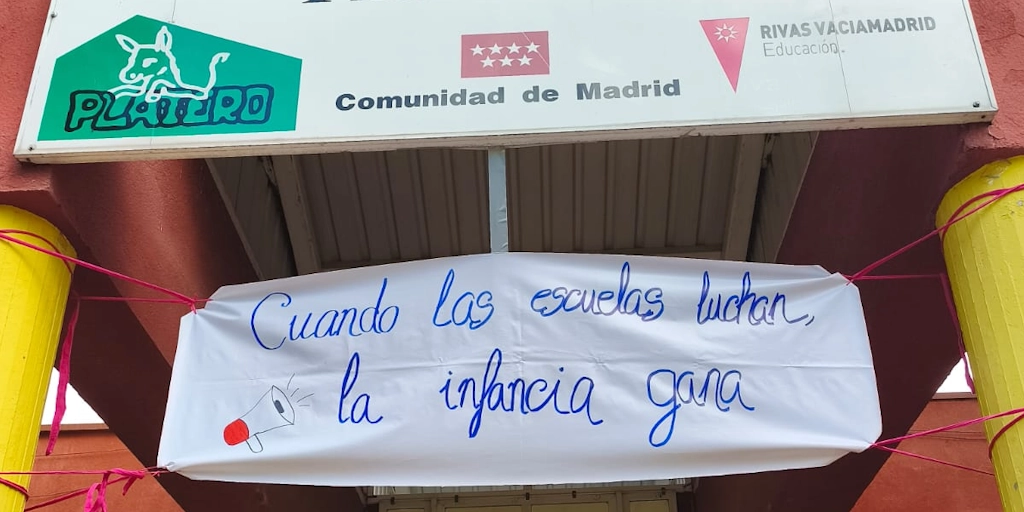 PLATERO
Comunidad de Madrid
RIVAS VACIAMADRID
Educación
Cuando las escuelas luchan,
la infancia gana